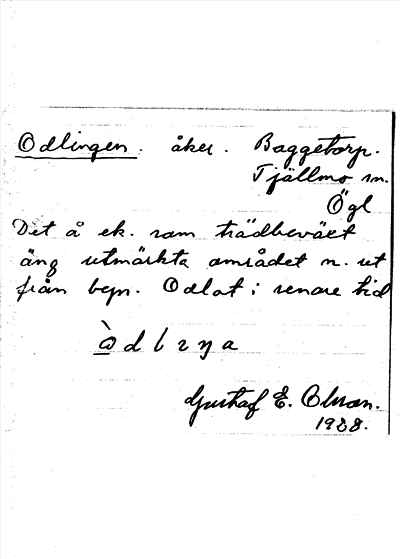 Odlingen. åker. Baggetorp.
Tjällmo sn.
Ögl
Det å ek. som trädbeväxt
äng utmärkta området n. ut
från bepn. Odlat i senare tid
òdlıŋa
Gustaf E. Olsson.
1928.